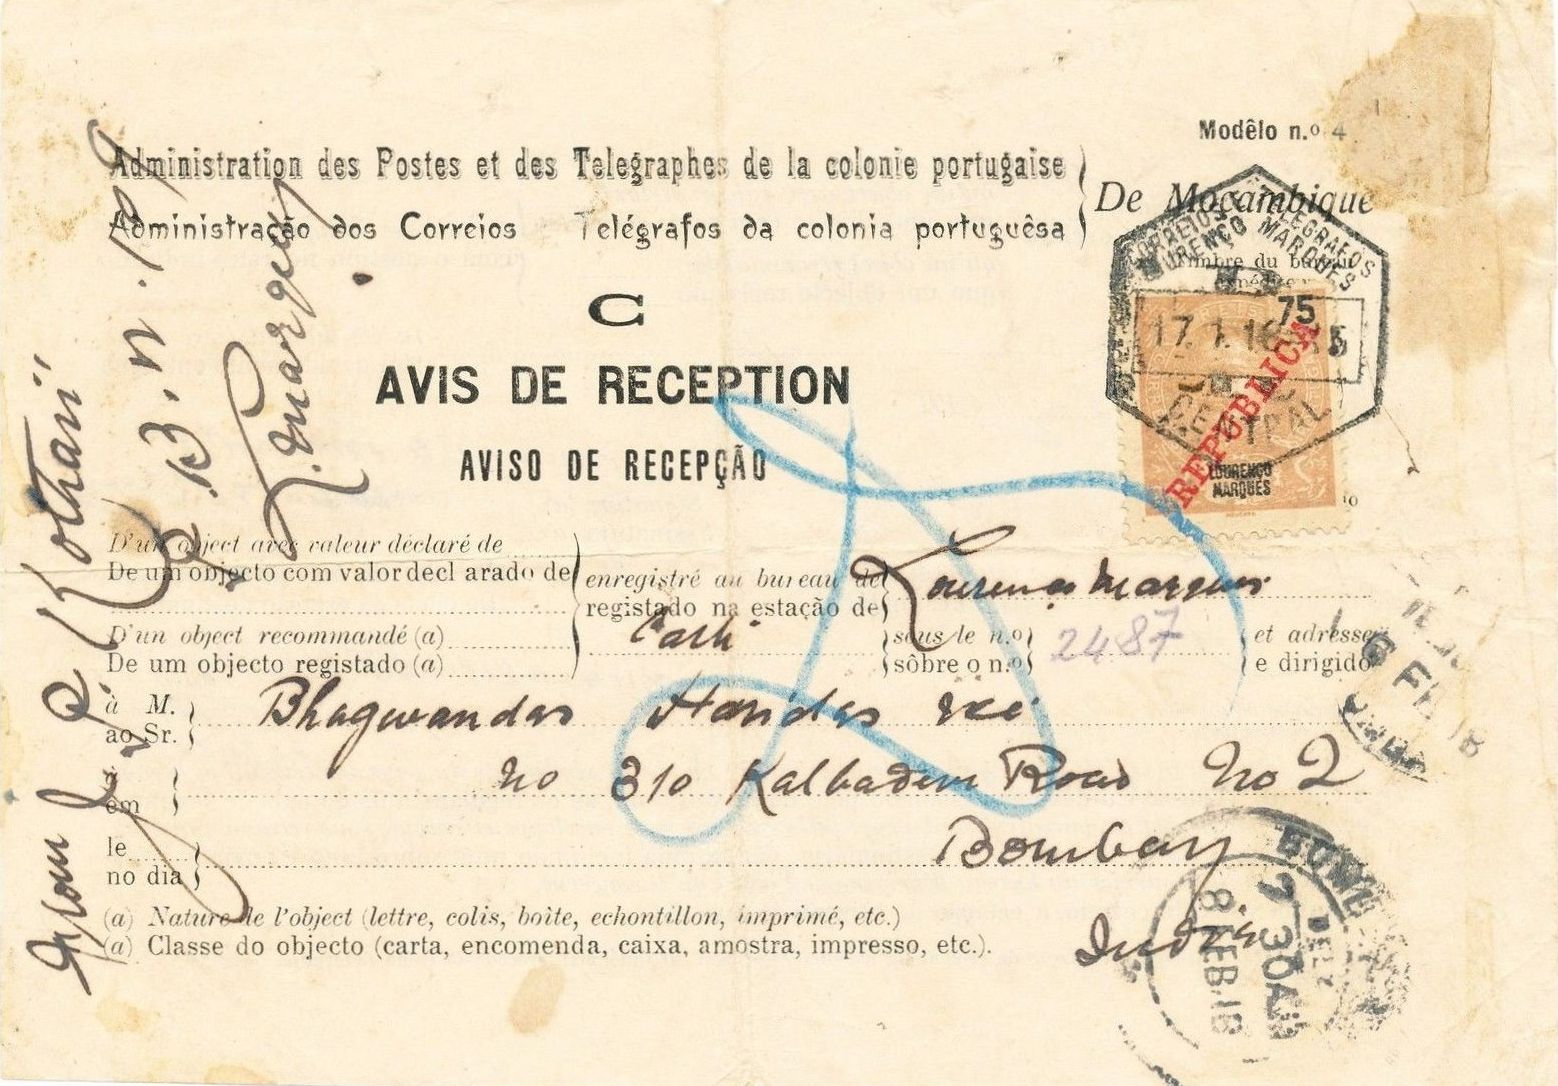 Modêlo n.º 4
Administration des Postes et des Telegraphes de la colonie portugaise
Administração dos Correios Telégrafos da colonia portuguêsa
De Moçambique
Timbre du bureau
CORREIOS E TELEGRAFOS
LOURENÇO MARQUES
75
17. 1. 16
REPUBLICA
CENTRAL
LOURENÇO
MARQUES
C
AVIS DE RECEPTION
AVISO DE RECEPÇÃO
D'un object avec valeur déclaré de
De um objecto com valor declarado de
enregistré au bureau de
registado na estação de
Lourenço Marques
D'un object recommandé (a)
De um objecto registado (a)
sous le n.º
sôbre o n.º
2487
et adresse
e dirigido
à M.
ao Sr.
Bhagwandas Haridas
à
em
No 310 Kalbadevi Road No 2
le
no dia
Bombay
India
(a) Nature de l'object (lettre, colis, boite, echontillon, imprimé, etc.)
(a) Classe do objecto (carta, encomenda, caixa, amostra, impresso, etc.).
Kothari
L. Marques
8 FEB. 16
7 30AM
DELY